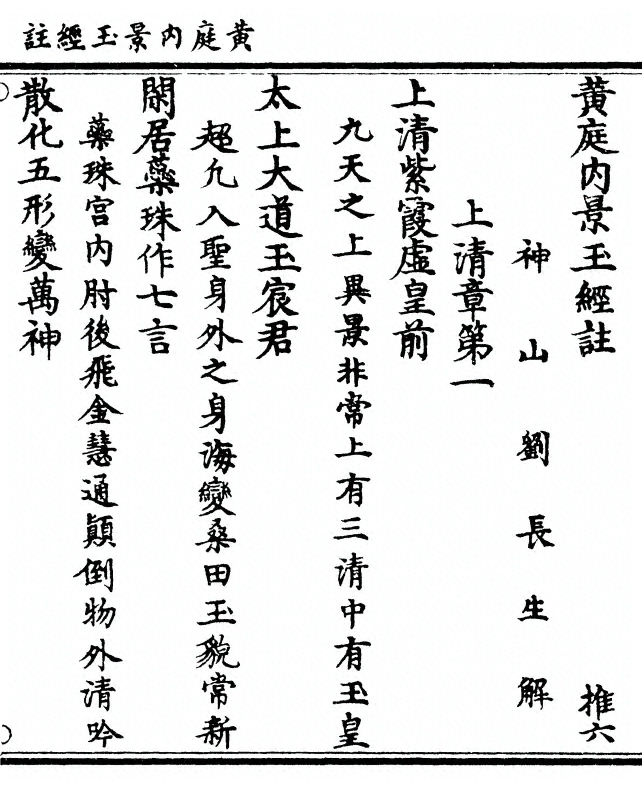 黄庭內景玉經註
黃庭內景玉經註 推六
神山劉長生解
上清章第一
上清紫霞虛皇前
九天之上異景非常上有三清中有玉皇
太上大道玉宸君
超凢入聖身外之身海變桑田玉貌常新
閑居蘂珠作七言
蘂珠宫內肘後飛金慧通顚倒物外清吟
散化五形變萬神